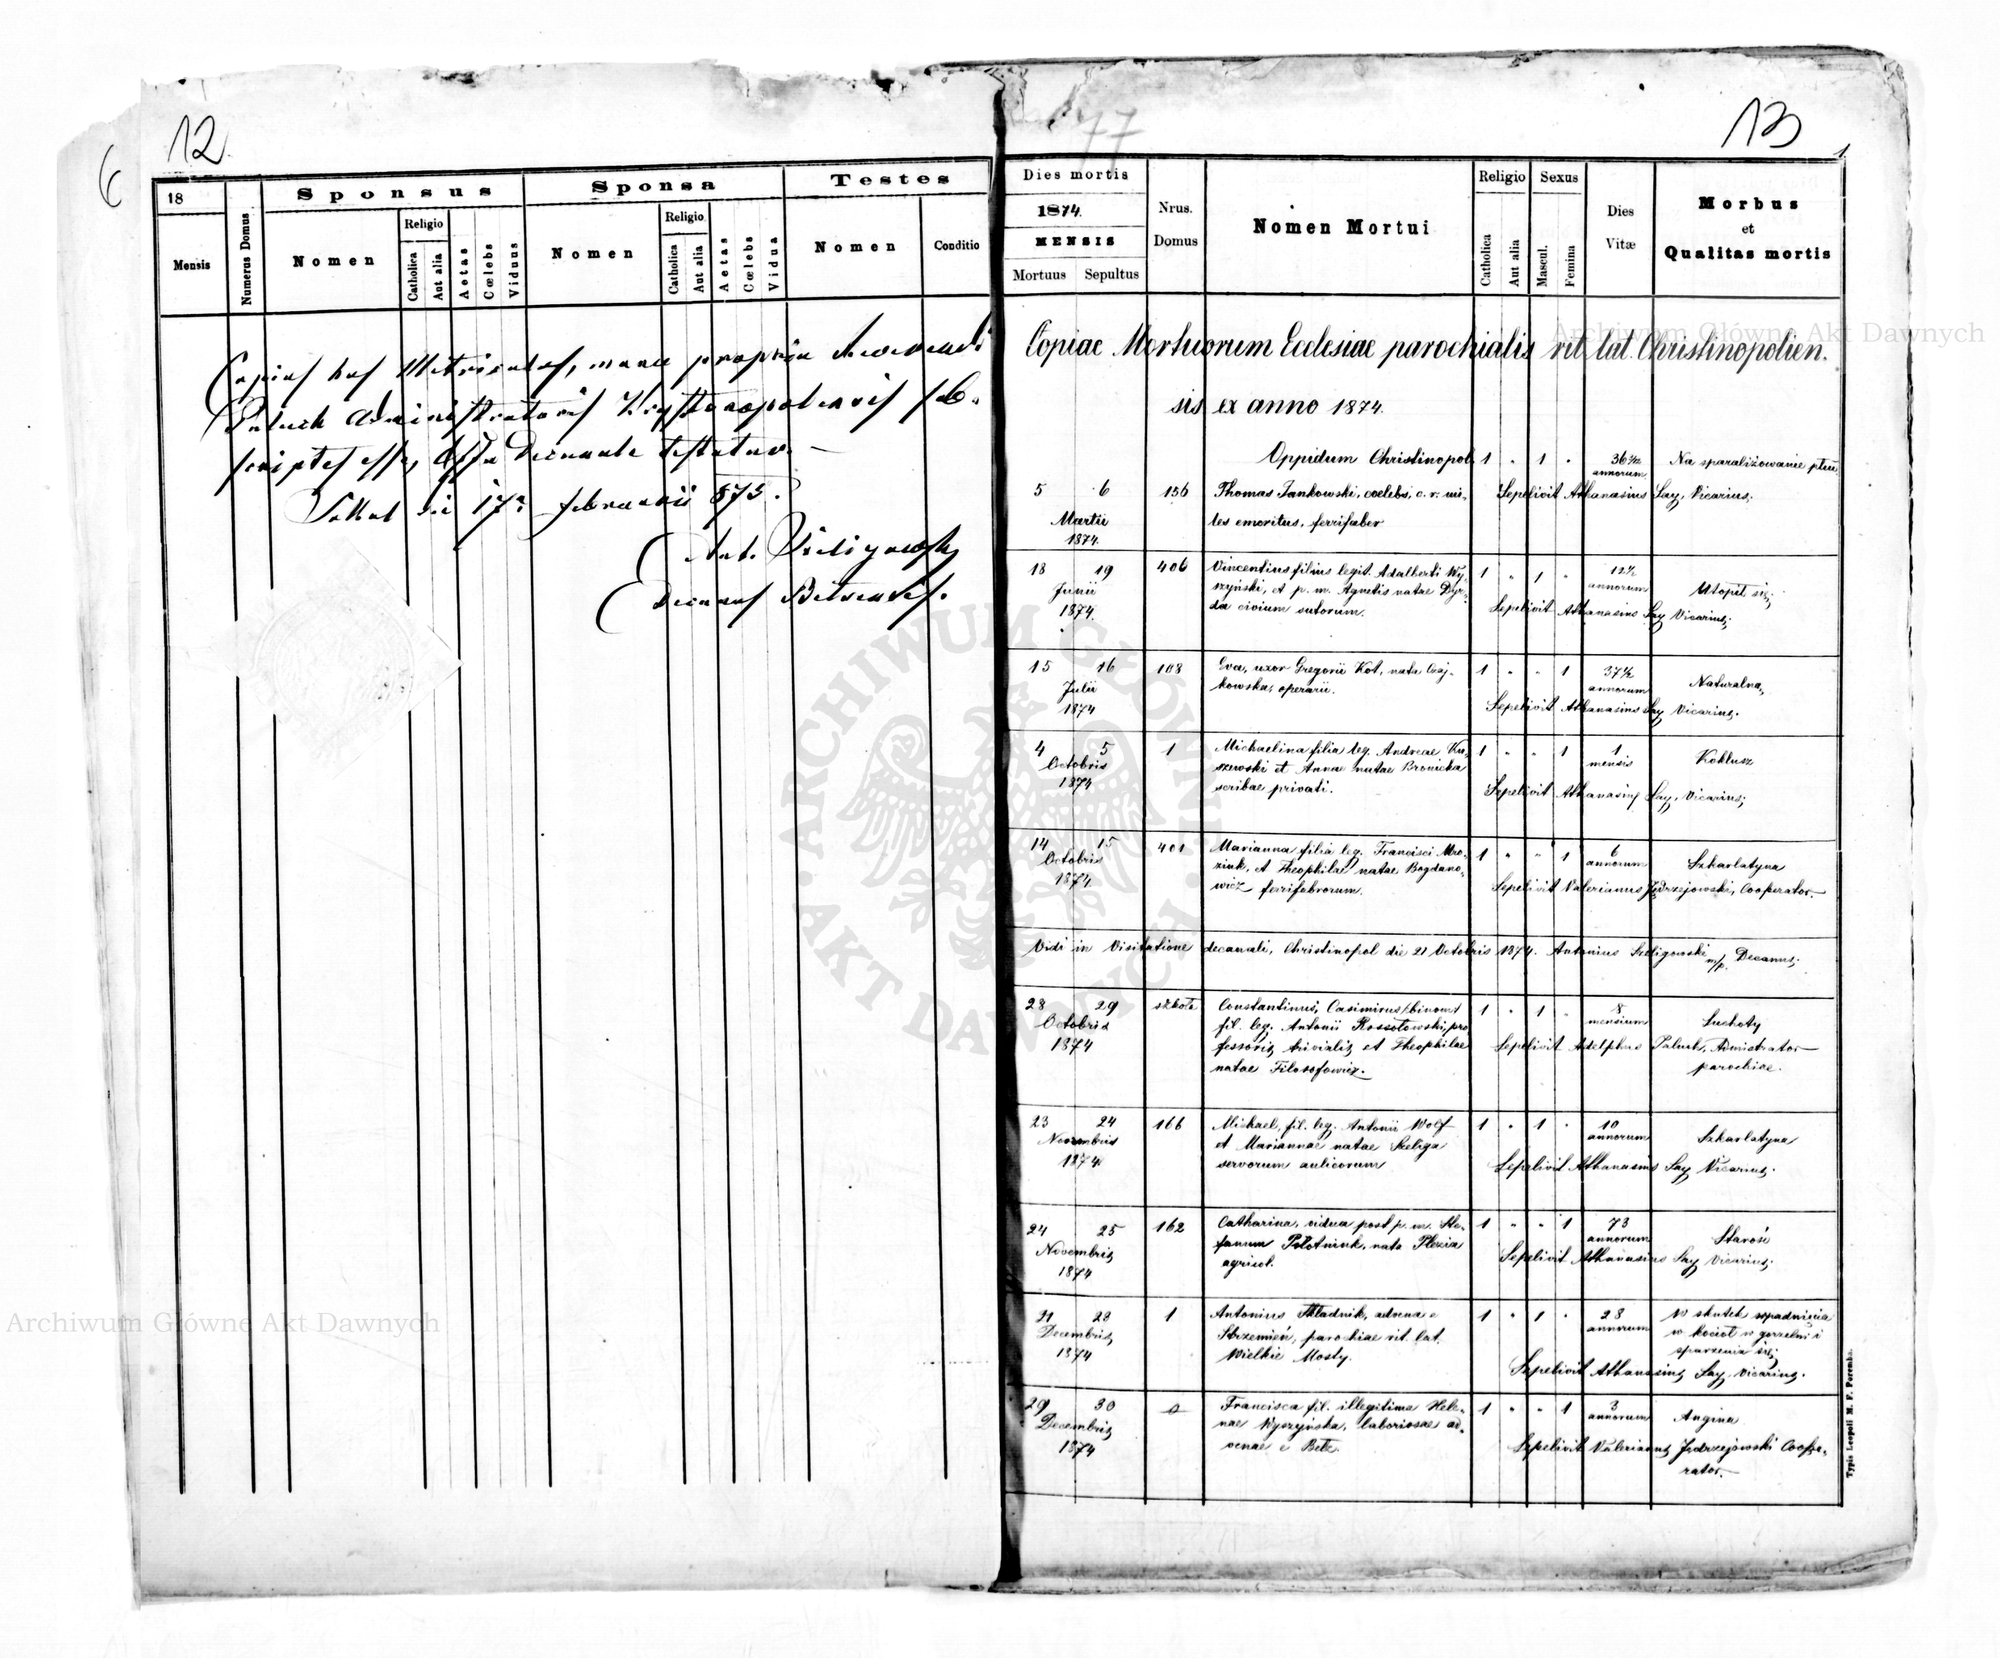 12
6
18
Mensis
Numerus Domus
Sponsus
Nomen
Religio
Catholica
Aut alia
Aetas
Cœlebs
Viduus
Sponsa
Nomen
Religio
Catholica
Aut alia
Aetas
Cœlebs
Vidua
Testes
Nomen
Conditio
Copias has Metricales, manu propria Reverendi
Paluch Administratoris Krystynopolensis sub-
scriptas esse, Offm Decanale testatur. —
Sokal die 17a februarii 875.
Ant. Szeligowski
Decanus Belzensis.
77
13
1
Dies mortis
1874.
MENSIS
Mortuus Sepultus
Nrus.
Domus
Nomen Mortui
Religio
Catholica
Aut alia
Sexus
Mascul.
Femina
Dies
Vitæ
Morbus
et
Qualitas mortis
Copiae Mortuorum Ecclesiae parochialis rit. lat. Christinopolien-
sis ex anno 1874.
Oppidum Christinopol 1 " 1 " 36 annorum Na sparaliżowanie płuc
5 6 156 Thomas Jankowski, coelebs, c. r. mi- Sepelivit Athanasius Say, Vicarius.
Martii les emeritus, ferrifaber
1874.
18 19 406 Vincentius filius legit. Adalberti Wy- 1 " 1 " 12½ annorum Utopił się
Junii szyński, et p. m. Agnetis natae Dyr-
1874. da civium sutorum. Sepelivit Athanasius Say Vicarius.
15 16 108 Eva, uxor Gregorii Kot, nata Czaj- 1 " " 1 37½ annorum Naturalna
Julii kowska, operarii.
1874 Sepelivit Athanasius Say Vicarius.
4 5 1 Michaelina filia leg. Andreae Ku- 1 " " 1 1 mensis Koklusz
Octobris szewski et Anna natae Bronicka
1874 scribae privati. Sepelivit Athanasius Say, Vicarius.
14 15 401 Marianna filia leg. Francisci Mro- 1 " " 1 6 annorum Szkarlatyna
Octobris ziuk, et Theophilae natae Bogdano-
1874. wicz ferrifabrorum. Sepelivit Valerianus Jędrzejowski, Cooperator.
Vidi in Visitatione decanali, Christinopol die 21 Octobris 1874. Antonius Szeligowski m/p. Decanus.
28 29 szkoła Constantinus, Casimirus /binom/ 1 " 1 " 8 mensium Suchoty
Octobris fil. leg. Antonii Rossołowski, pro-
1874 fessoris trivialis et Theophilae Sepelivit Adolphus Paluch, Admistrator
natae Filosofowicz. parochiae.
23 24 166 Michael, fil. leg. Antonii Wolf 1 " 1 " 10 annorum Szkarlatyna
Novembris et Mariannae natae Szeliga
1874 servorum aulicorum Sepelivit Athanasius Say Vicarius.
24 25 162 Catharina, vidua post p. m. Ste- 1 " " 1 73 annorum Starość
Novembris fanum Płotniuk, nata Plezia Sepelivit Athanasius Say Vicarius.
1874 agricol.
21 23 1 Antonius Składnik, advena e 1 " 1 " 28 annorum W skutek wpadnięcia
Decembris Strzemień, parochiae rit. lat. w kocioł w gorzelni i
1874 Wielkie Mosty. sparzenia się.
Sepelivit Athanasius Say, Vicarius.
29 30 Francisca fil. illegitima Hele- 1 " " 1 3 annorum Angina
Decembris nae Wyszyńska, laboriosae ad-
1874 venae e Bełz. Sepelivit Valerianus Jędrzejowski Coope-
rator.
Typis Leopoli M. F. Poremba.
Archiwum Główne Akt Dawnych
ARCHIWUM GŁÓWNE AKT DAWNYCH
Archiwum Główne Akt Dawnych